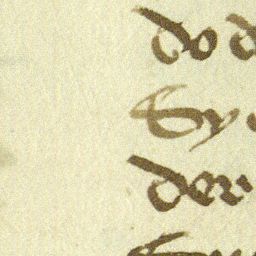 do d
Sy
der